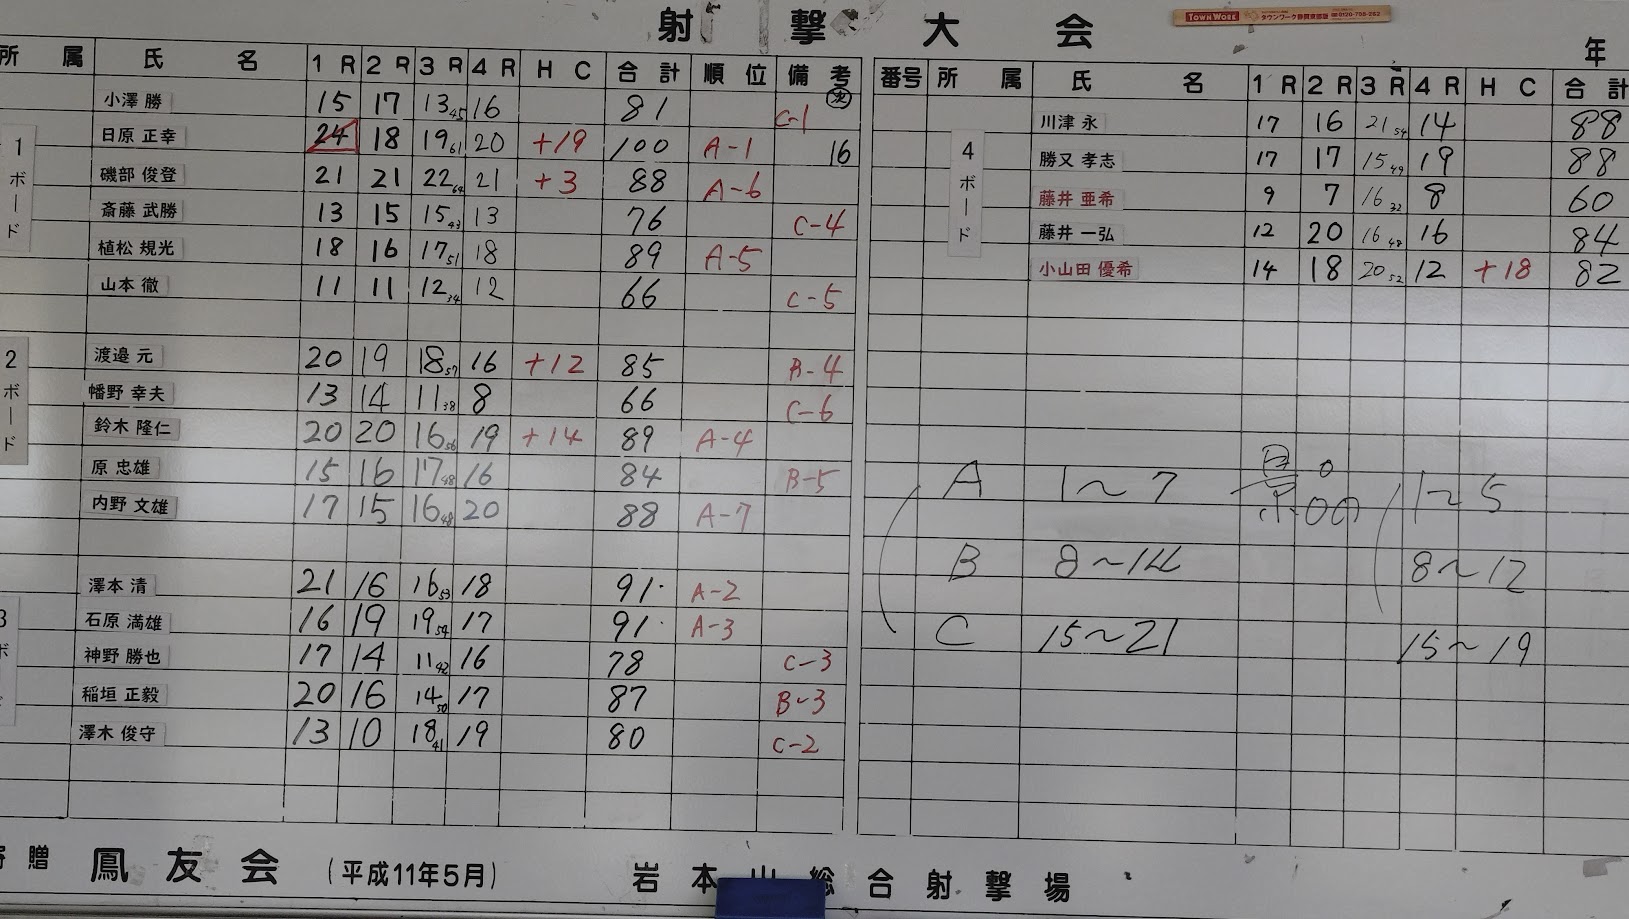 射撃大会
TOWNWORK タウンワーク静岡東部版
年
所属 氏名 1R 2R 3R 4R HC 合計 順位 備考
1ボード
小澤 勝 15 17 13 45 16 81 C-1
日原 正幸 24 18 19 61 20 +19 100 A-1 16
磯部 俊登 21 21 22 64 21 +3 88 A-6
斎藤 武勝 13 15 15 43 13 76 C-4
植松 規光 18 16 17 51 18 89 A-5
山本 徹 11 11 12 34 12 66 C-5
2ボード
渡邉 元 20 19 18 57 16 +12 85 B-4
幡野 幸夫 13 14 11 38 8 66 C-6
鈴木 隆仁 20 20 16 56 19 +14 89 A-4
原 忠雄 15 16 17 48 16 84 B-5
内野 文雄 17 15 16 48 20 88 A-7
3ボ
澤本 清 21 16 16 53 18 91 A-2
石原 満雄 16 19 19 54 17 91 A-3
神野 勝也 17 14 11 42 16 78 C-3
稲垣 正毅 20 16 14 50 17 87 B-3
澤木 俊守 13 10 18 41 19 80 C-2
番号 所属 氏名 1R 2R 3R 4R HC 合計
4ボード
川津 永 17 16 21 54 14 88
勝又 孝志 17 17 15 49 19 88
藤井 亜希 9 7 16 32 8 60
藤井 一弘 12 20 16 48 16 84
小山田 優希 14 18 20 52 12 +18 82
A 1~7 1~5
B 8~14 8~12
C 15~21 15~19
寄贈 鳳友会 (平成11年5月) 岩本山総合射撃場